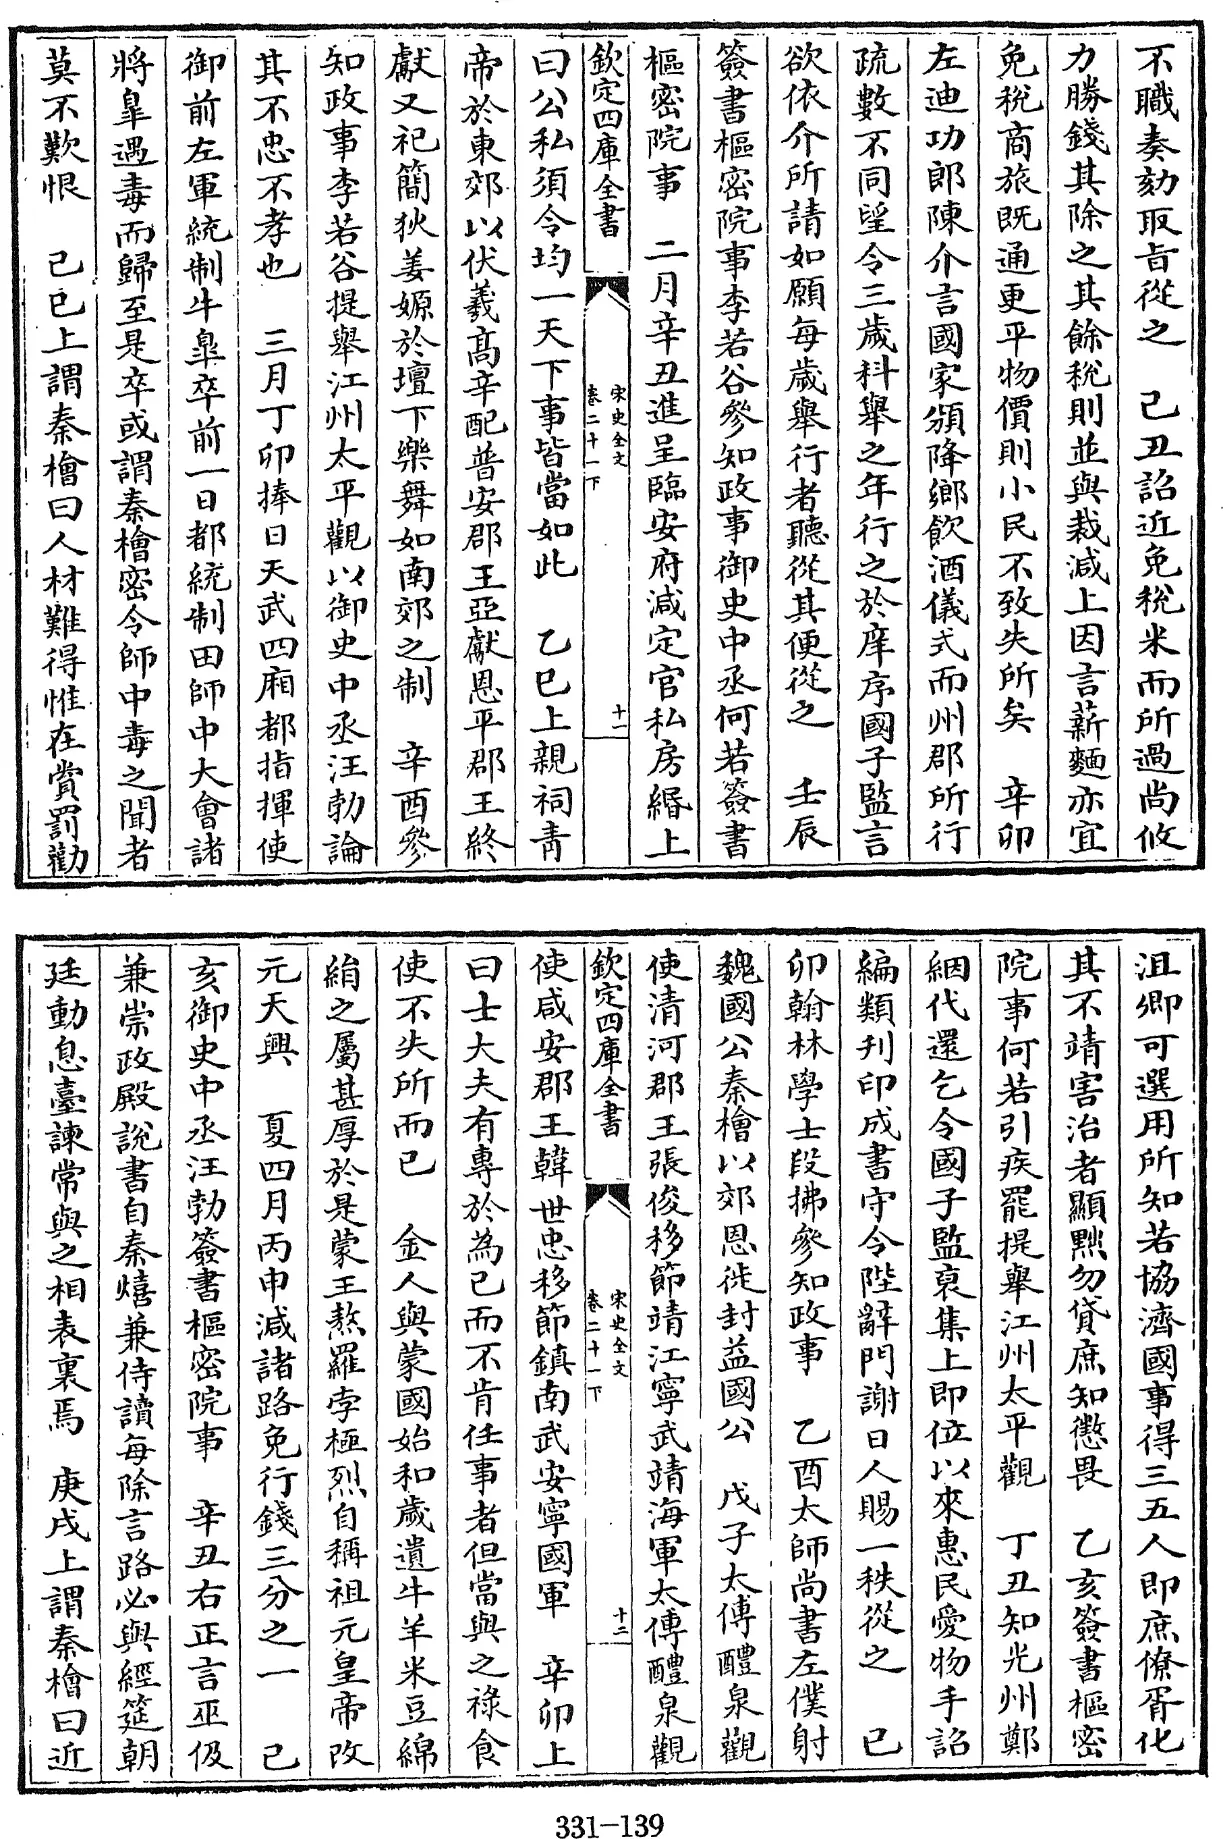 不職奏劾取旨從之　己丑詔近免稅米而所過尚收
力勝錢其除之其餘稅則並與裁減上因言薪麵亦宜
免稅商旅既通更平物價則小民不致失所矣　辛卯
左迪功郎陳介言國家頒降鄉飲酒儀式而州郡所行
疏數不同望令三歲科舉之年行之於庠序國子監言
欲依介所請如願每歲舉行者聽從其便從之　壬辰
簽書樞密院事李若谷參知政事御史中丞何若簽書
樞密院事　二月辛丑進呈臨安府減定官私房緡上
欽定四庫全書
宋史全文
卷二十一下
十一
曰公私須令均一天下事皆當如此　乙巳上親祠青
帝於東郊以伏羲高辛配普安郡王亞獻恩平郡王終
獻又祀簡狄姜嫄於壇下樂舞如南郊之制　辛酉參
知政事李若谷提舉江州太平觀以御史中丞汪勃論
其不忠不孝也　三月丁卯捧日天武四廂都指揮使
御前左軍統制牛皐卒前一日都統制田師中大會諸
將皐遇毒而歸至是卒或謂秦檜密令師中毒之聞者
莫不歎恨　己巳上謂秦檜曰人材難得惟在賞罰勸
沮卿可選用所知若協濟國事得三五人即庶僚胥化
其不靖害治者顯黜勿貸庶知懲畏　乙亥簽書樞密
院事何若引疾罷提舉江州太平觀　丁丑知光州鄭
綑代還乞令國子監裒集上即位以來惠民愛物手詔
編類刊印成書守令陛辭門謝日人賜一秩從之　已
卯翰林學士段拂參知政事　乙酉太師尚書左僕射
魏國公秦檜以郊恩徙封益國公　戊子太傅醴泉觀
使清河郡王張俊移節靖江寧武靖海軍太傅醴泉觀
欽定四庫全書
宋史全文
卷二十一下
十二
使咸安郡王韓世忠移節鎮南武安寧國軍　辛卯上
曰士大夫有專於為已而不肯任事者但當與之祿食
使不失所而已　金人與蒙國始和歲遺牛羊米豆綿
絹之屬甚厚於是蒙王熬羅孛極烈自稱祖元皇帝改
元天興　夏四月丙申減諸路免行錢三分之一　己
亥御史中丞汪勃簽書樞密院事　辛丑右正言巫伋
兼崇政殿說書自秦熺兼侍讀每除言路必與經筵朝
廷動息臺諫常與之相表裏焉　庚戌上謂秦檜曰近
331-139